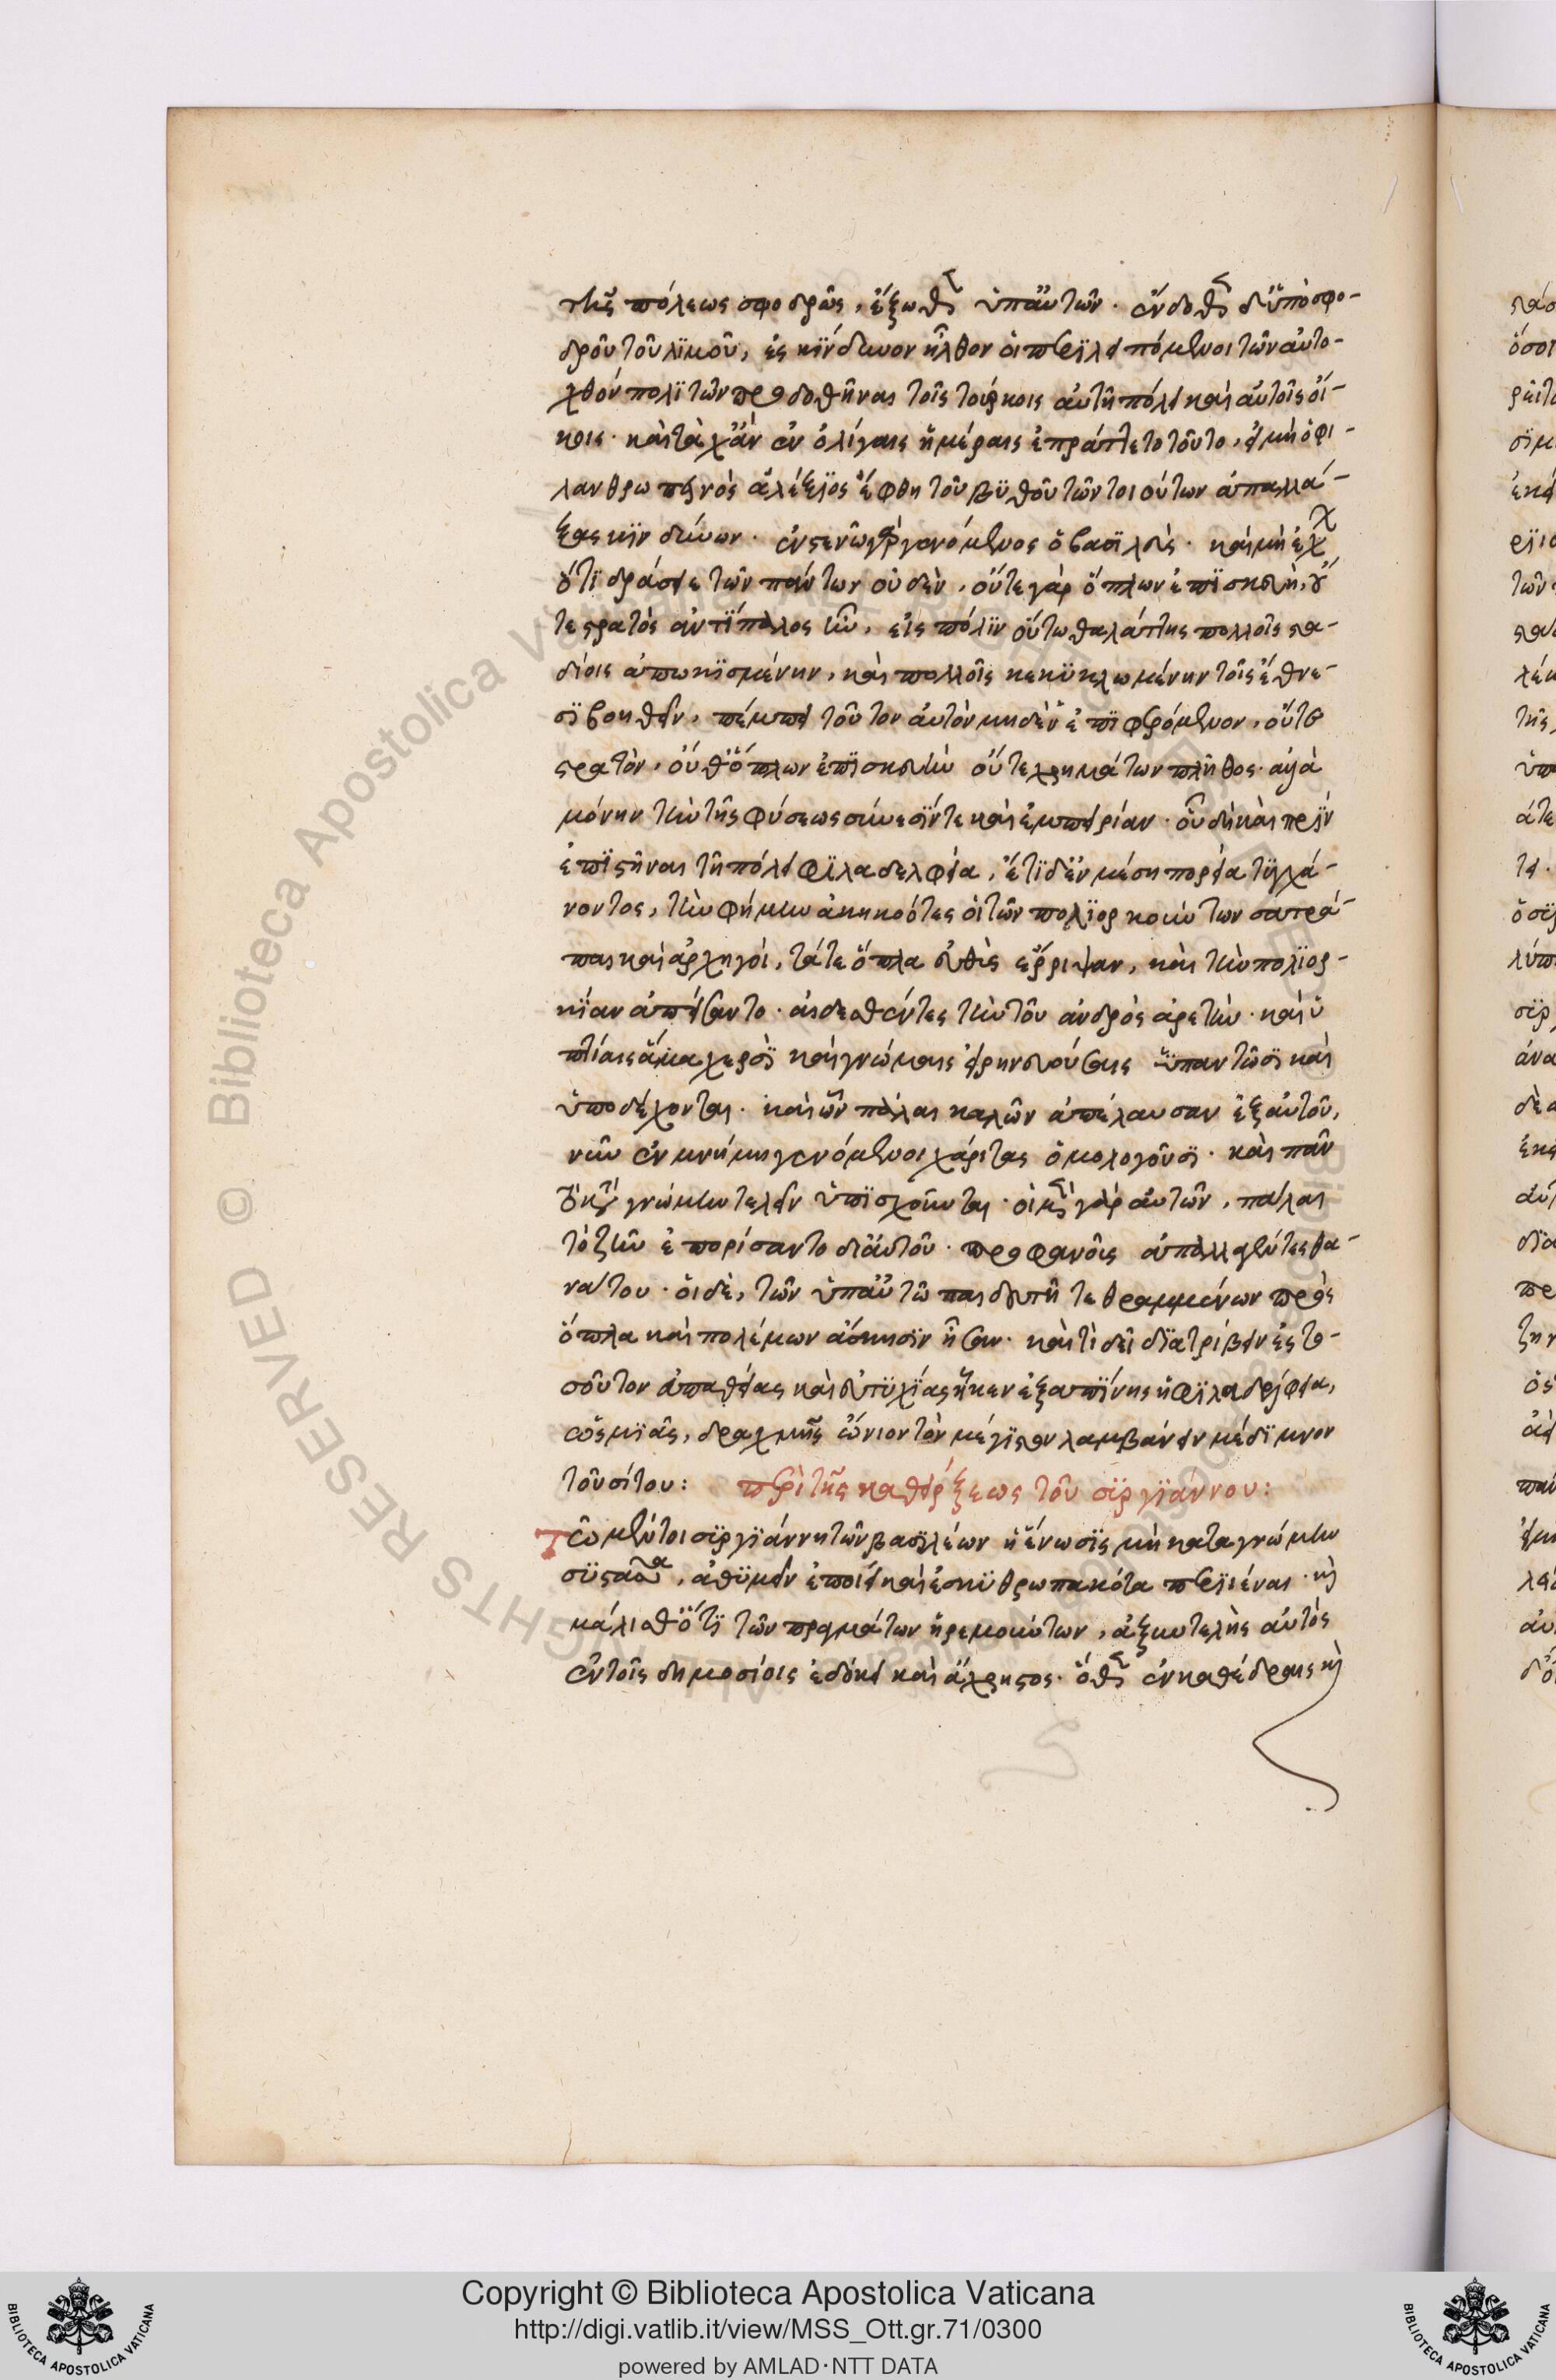 τῆς πόλεως σφοδρῶς, ἔξωθεν ὑπ' αὐτῶν. ἔνδοθεν δ' ὑπὸ σφο-
δροῦ τοῦ λιμοῦ, ἐς κίνδυνον ἦλθον οἱ περιλειπόμενοι τῶν αὐτο-
χθόν πολιτῶν προδοθῆναι τοῖς τούρκοις αὐτῇ πόλει καὶ αὐτοῖς οἴ-
κοις. καὶ τάχ' ἂν ἐν ὀλίγαις ἡμέραις ἐπράττετο τοῦτο, εἰ μὴ ὁ φι-
λανθρωπηνὸς ἀλέξιος ἔφθη τοῦ βυθοῦ τῶν τοιούτων ἀπαλλά-
ξας κινδύνων. ἐν στενῷ γὰρ γενόμενος ὁ βασιλεὺς. καὶ μὴ ἔχ
ὅτι δράσειε τῶν πάντων οὐδὲν, οὔτε γὰρ ὅπλων ἐπισκευὴ, οὔ
τε στρατὸς ἀντίπαλος ἦν, εἰς πόλιν οὕτω θαλάττης πολλοῖς στα-
δίοις ἀπωκισμένην, καὶ πολλοῖς κεκυκλωμένην τοῖς ἔθνε-
σι βοηθεῖν, πέμπει τοῦτον αὐτὸν μηδὲν ἐπιφερόμενον, οὔτε
στρατὸν, οὔθ' ὅπλων ἐπισκευὴν οὔτε χρημάτων πλῆθος. ἀλλὰ
μόνην τὴν τῆς φύσεως σύνεσίν τε καὶ ἐμπειρίαν. οὗ δὴ καὶ πρὶν
ἐπιστῆναι τῇ πόλει φιλαδελφεία, ἔτι δ' ἐν μέσῃ πορεία τυγχά-
νοντος, τὴν φήμην ἀκηκοότες οἱ τῶν πολιορκούντων σατρά-
παι καὶ ἀρχηγοί, τά τε ὅπλα εὐθὺς ἔρριψαν, καὶ τὴν πολιορ-
κίαν ἀπείπαντο. αἰδεσθέντες τὴν τοῦ ἀνδρὸς ἀρετὴν. καὶ ὑ
πτίαις ἅμα χερσὶ καὶ γνώμαις εἰρηνευούσαις ὑπαντῶσι καὶ
ὑποδέχονται. καὶ ὧν πάλαι καλῶν ἀπέλαυσαν ἐξ αὐτοῦ,
νῦν ἐν μνήμῃ γενόμενοι χάριτας ὁμολογοῦσι. καὶ πᾶν
γνώμην τελεῖν ὑπισχνοῦνται. οἱ μὲν γὰρ αὐτῶν, πάλαι
τὸ ζῆν ἐπορίσαντο δι' αὐτοῦ. προφανοῖς ἀπαλλαγέντες θα-
νάτου. οἱ δὲ, τῶν ὑπ' αὐτῷ παιδευτῇ τεθραμμένων πρὸς
ὅπλα καὶ πολέμων ἄσκησιν ἦσαν. καὶ τί δεῖ διατρίβειν ἐς το-
σοῦτον ἀπαθείας καὶ εὐτυχίας ἧκεν ἐξαπίνης ἡ φιλαδέλφεια,
ὡς μιᾶς, δραχμῆς ὤνιον τὸν μέγιστον λαμβάνειν μέδιμνον
τοῦ σίτου: περὶ τῆς καθείρξεως τοῦ σιργιάννου:
Τῶ μέντοι σιργιάννῃ τῶν βασιλέων ἡ ἕνωσις μὴ κατα γνώμην
συστᾶσα, ἀθυμεῖν ἐποίει καὶ ἐσκυθρωπακότα περιιέναι. καὶ
μάλισθ' ὅτι τῶν πραγμάτων ἠρεμούντων, ἀξυντελὴς αὐτὸς
ἐν τοῖς δημοσίοις ἐδόκει καὶ ἄχρηστος. ὅθεν ἐν καθέδραις καὶ
Copyright © Biblioteca Apostolica Vaticana
http://digi.vatlib.it/view/MSS_Ott.gr.71/0300
powered by AMLAD·NTT DATA